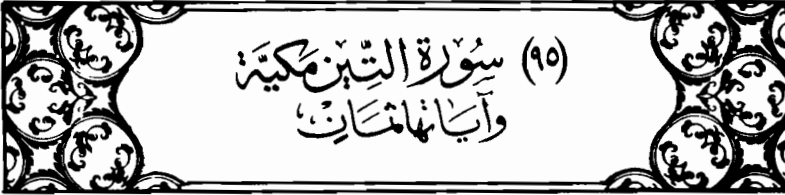 (٩٥) سُورَةُ التِّينِ مَكِّيَّة
وَآيَاتُهَا ثَمَانٍ